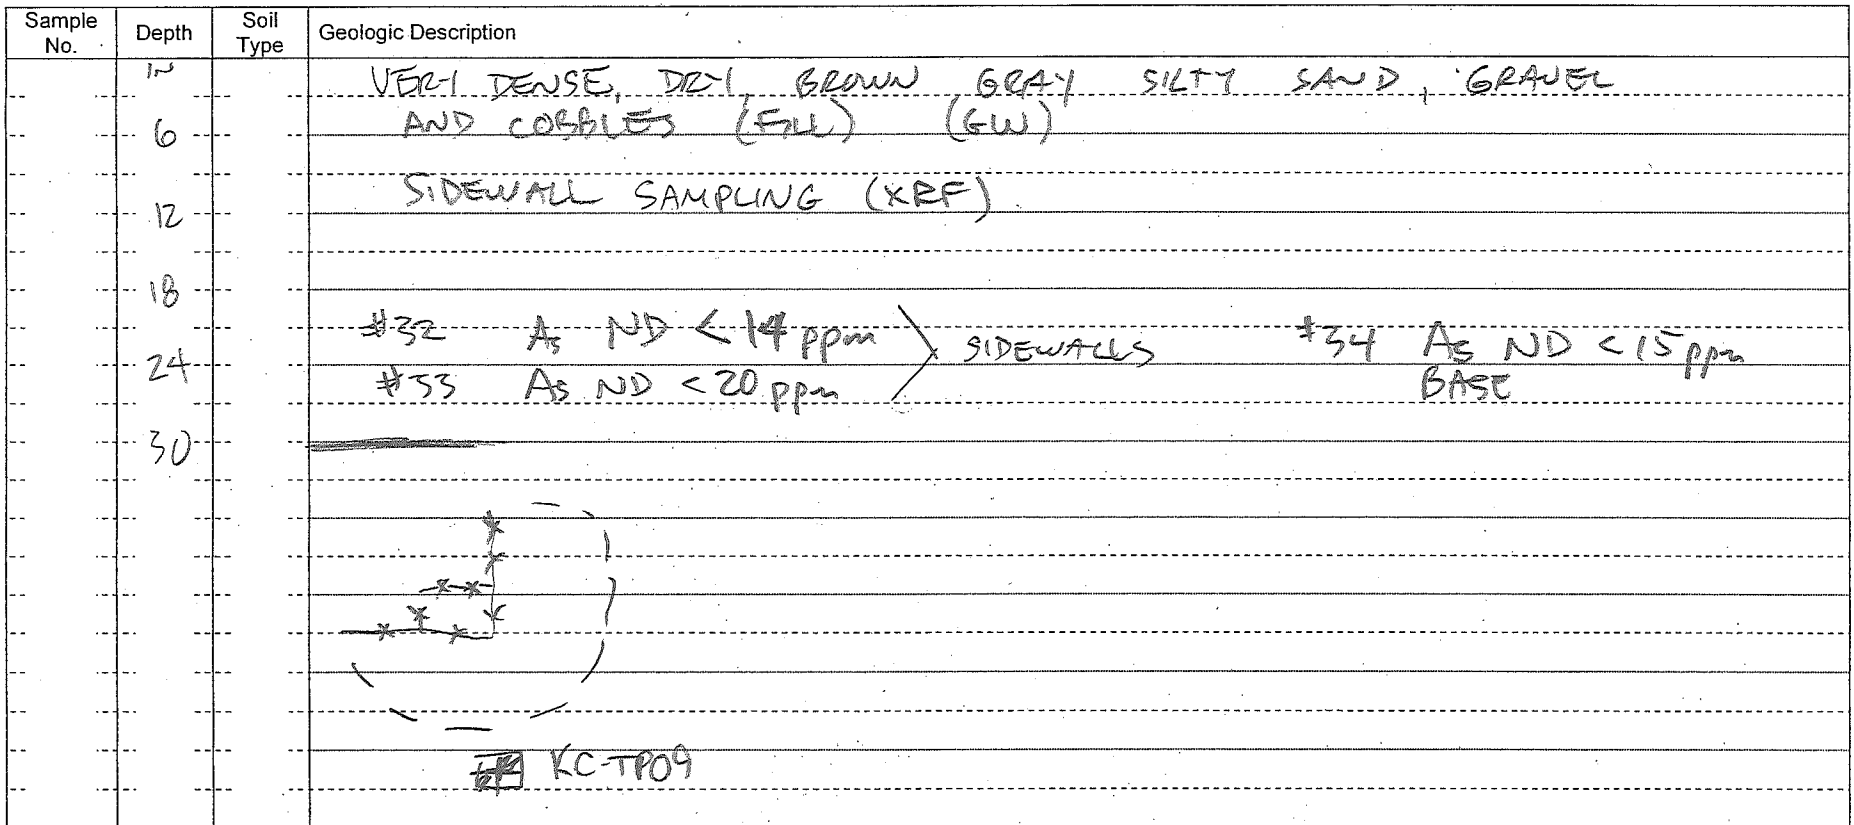 Sample No. Depth Soil Type Geologic Description
IN VERY DENSE, DRY, BROWN GRAY SILTY SAND, GRAVEL
6 AND COBBLES (FILL) (GW)
SIDEWALL SAMPLING (XRF)
12
18
#32 As ND < 14 ppm SIDEWALLS #34 As ND < 15 ppm
24
#33 As ND < 20 ppm BASE
30
KC-TP09